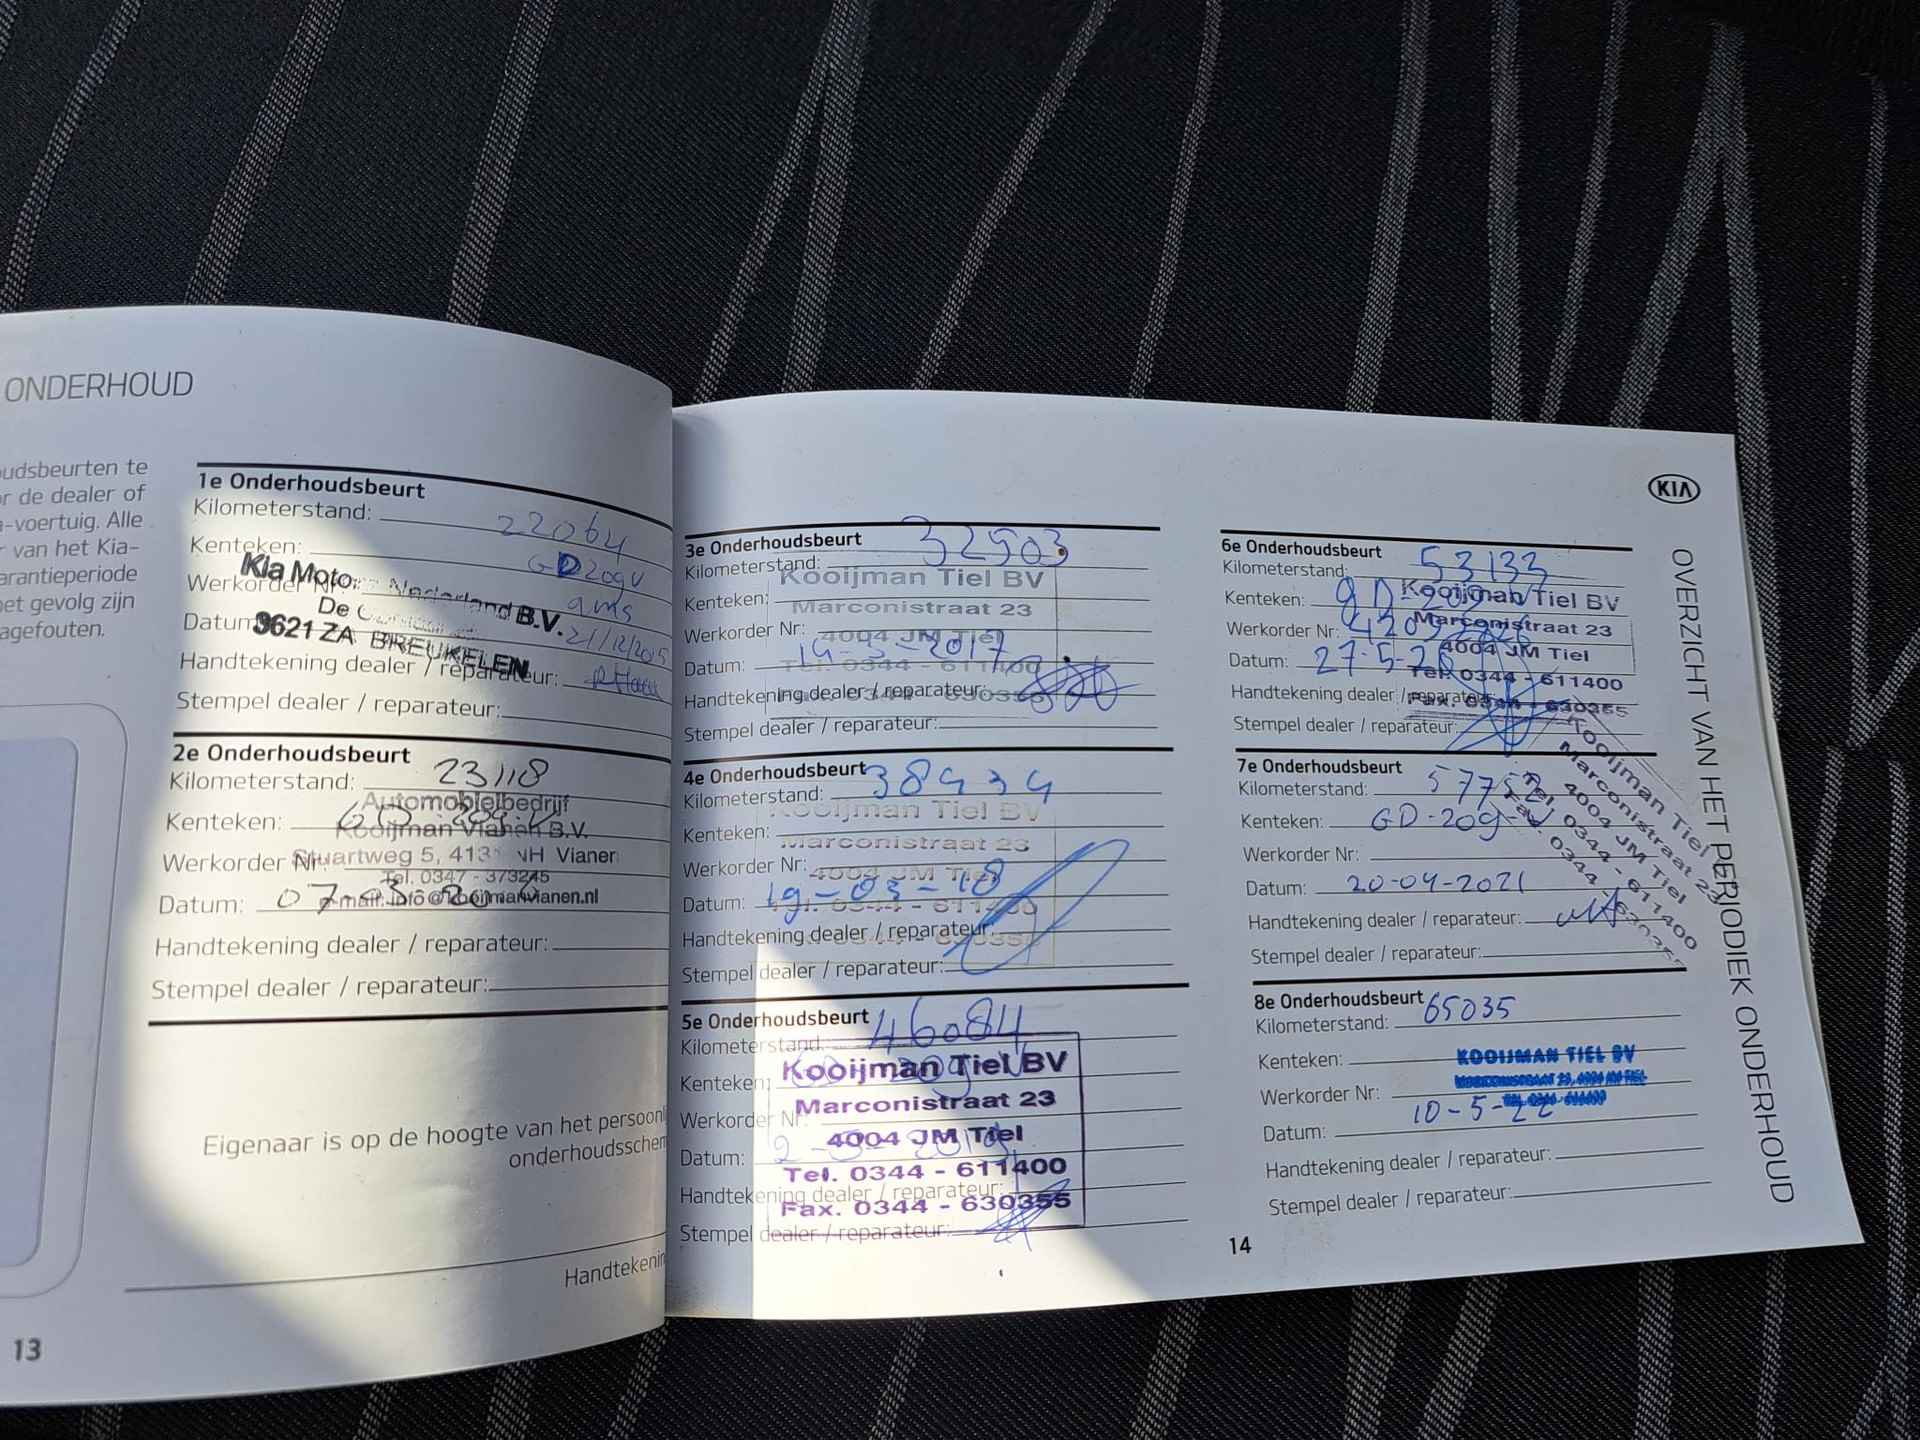 ONDERHOUD
oudsbeurten te
or de dealer of
a-voertuig. Alle
r van het Kia-
arantieperiode
oet gevolg zijn
agefouten.
13
1e Onderhoudsbeurt
Kilometerstand: 22064
Kenteken: GD209V
Werkorder Nr: gms
Datum: 21/12/2015
Handtekening dealer / reparateur:
Stempel dealer / reparateur:
Kia Motors Nederland B.V.
De
3621 ZA BREUKELEN
2e Onderhoudsbeurt
Kilometerstand: 23118
Kenteken:
Werkorder Nr:
Datum: 07-03-
Handtekening dealer / reparateur:
Stempel dealer / reparateur:
Automobielbedrijf
Kooijman Vianen B.V.
Stuartweg 5, 413 NH Vianen
Tel. 0347 - 373245
E-mail: info@kooijmanvianen.nl
Eigenaar is op de hoogte van het persoonl
onderhoudsschem
Handtekenin
3e Onderhoudsbeurt
Kilometerstand: 32903
Kenteken:
Werkorder Nr:
Datum: 14-3-2017
Handtekening dealer / reparateur:
Stempel dealer / reparateur:
Kooijman Tiel BV
Marconistraat 23
4004 JM Tiel
Tel. 0344 - 611400
Fax. 0344 - 630355
4e Onderhoudsbeurt
Kilometerstand: 38434
Kenteken:
Werkorder Nr:
Datum: 19-03-18
Handtekening dealer / reparateur:
Stempel dealer / reparateur:
Kooijman Tiel BV
Marconistraat 23
4004 JM Tiel
Tel. 0344 - 611400
Fax. 0344 - 630355
5e Onderhoudsbeurt
Kilometerstand: 46084
Kenteken:
Werkorder Nr:
Datum:
Handtekening dealer / reparateur:
Stempel dealer / reparateur:
Kooijman Tiel BV
Marconistraat 23
4004 JM Tiel
Tel. 0344 - 611400
Fax. 0344 - 630355
6e Onderhoudsbeurt
Kilometerstand: 53133
Kenteken:
Werkorder Nr:
Datum: 27-5-20
Handtekening dealer / reparateur:
Stempel dealer / reparateur:
Kooijman Tiel BV
Marconistraat 23
4004 JM Tiel
Tel. 0344 - 611400
Fax. 0344 - 630355
7e Onderhoudsbeurt
Kilometerstand: 57752
Kenteken: GD-209-V
Werkorder Nr:
Datum: 20-04-2021
Handtekening dealer / reparateur:
Stempel dealer / reparateur:
Kooijman Tiel BV
Marconistraat 23
4004 JM Tiel
Tel. 0344 - 611400
Fax. 0344 - 630355
8e Onderhoudsbeurt
Kilometerstand: 65035
Kenteken:
Werkorder Nr:
Datum: 10-5-22
Handtekening dealer / reparateur:
Stempel dealer / reparateur:
KOOIJMAN TIEL BV
MARCONISTRAAT 23, 4004 JM TIEL
TEL. 0344 - 611400
14
KIA
OVERZICHT VAN HET PERIODIEK ONDERHOUD